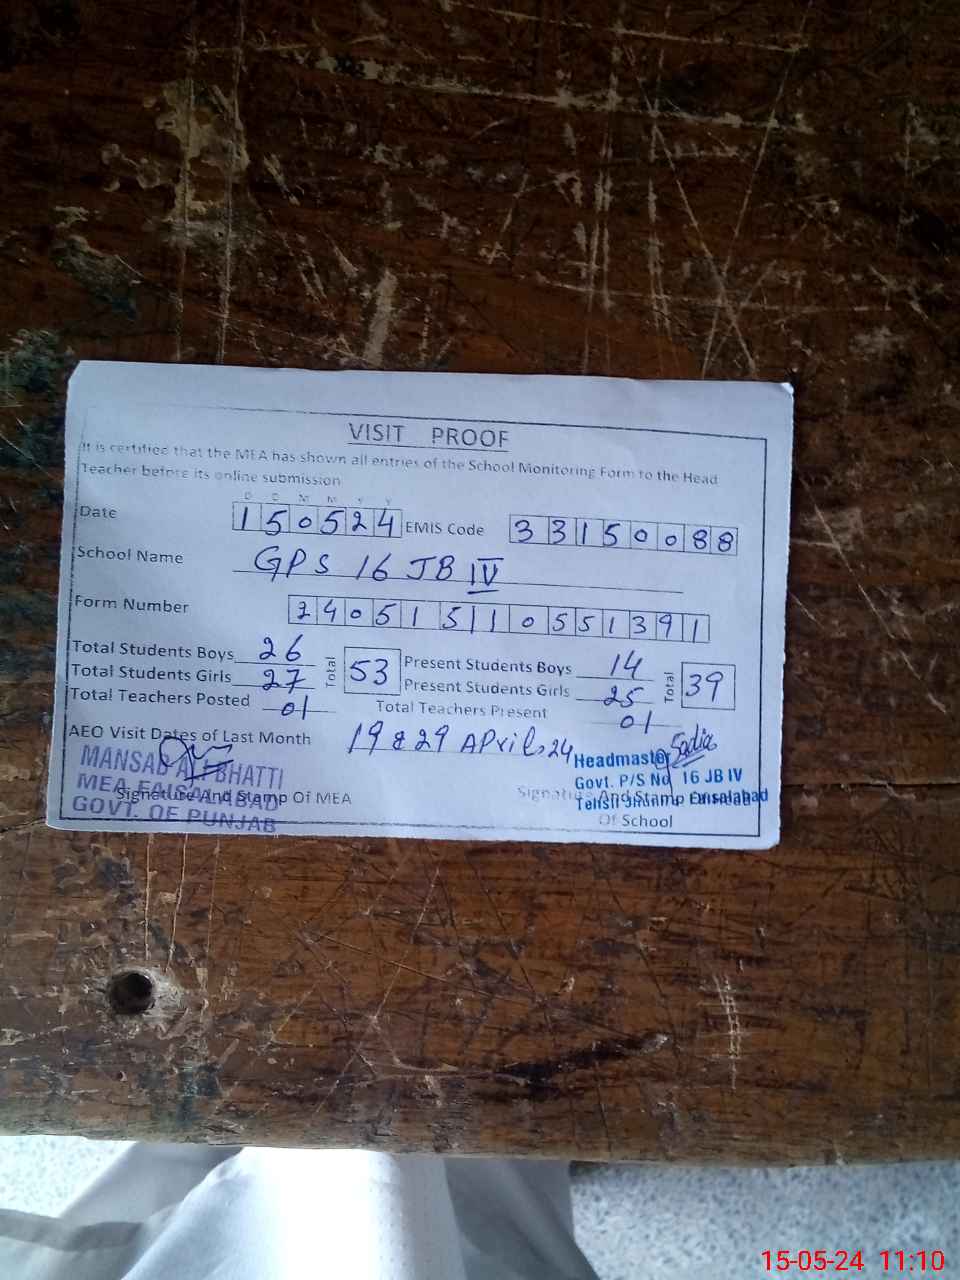 VISIT PROOF
It is certified that the MEA has shown all entries of the School Monitoring Form to the Head
Teacher before its online submission
D D M M Y Y
Date 150524 EMIS Code 33150088
School Name GPS 16 JB IV
Form Number 240515110551391
Total Students Boys 26 Total 53 Present Students Boys 14 Total 39
Total Students Girls 27 Present Students Girls 25
Total Teachers Posted 01 Total Teachers Present 01
AEO Visit Dates of Last Month 19 & 29 April, 24
Sadia
MANSAB ALI BHATTI
MEA FAISALABAD
GOVT. OF PUNJAB
Signature And Stamp Of MEA
Headmaster
Govt. P/S No 16 JB IV
Faisalabad
Signature And Stamp
Of School
15-05-24 11:10